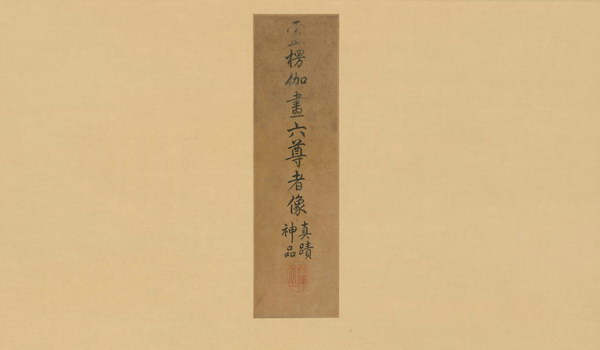 楞伽畫六尊者像
真蹟
神品